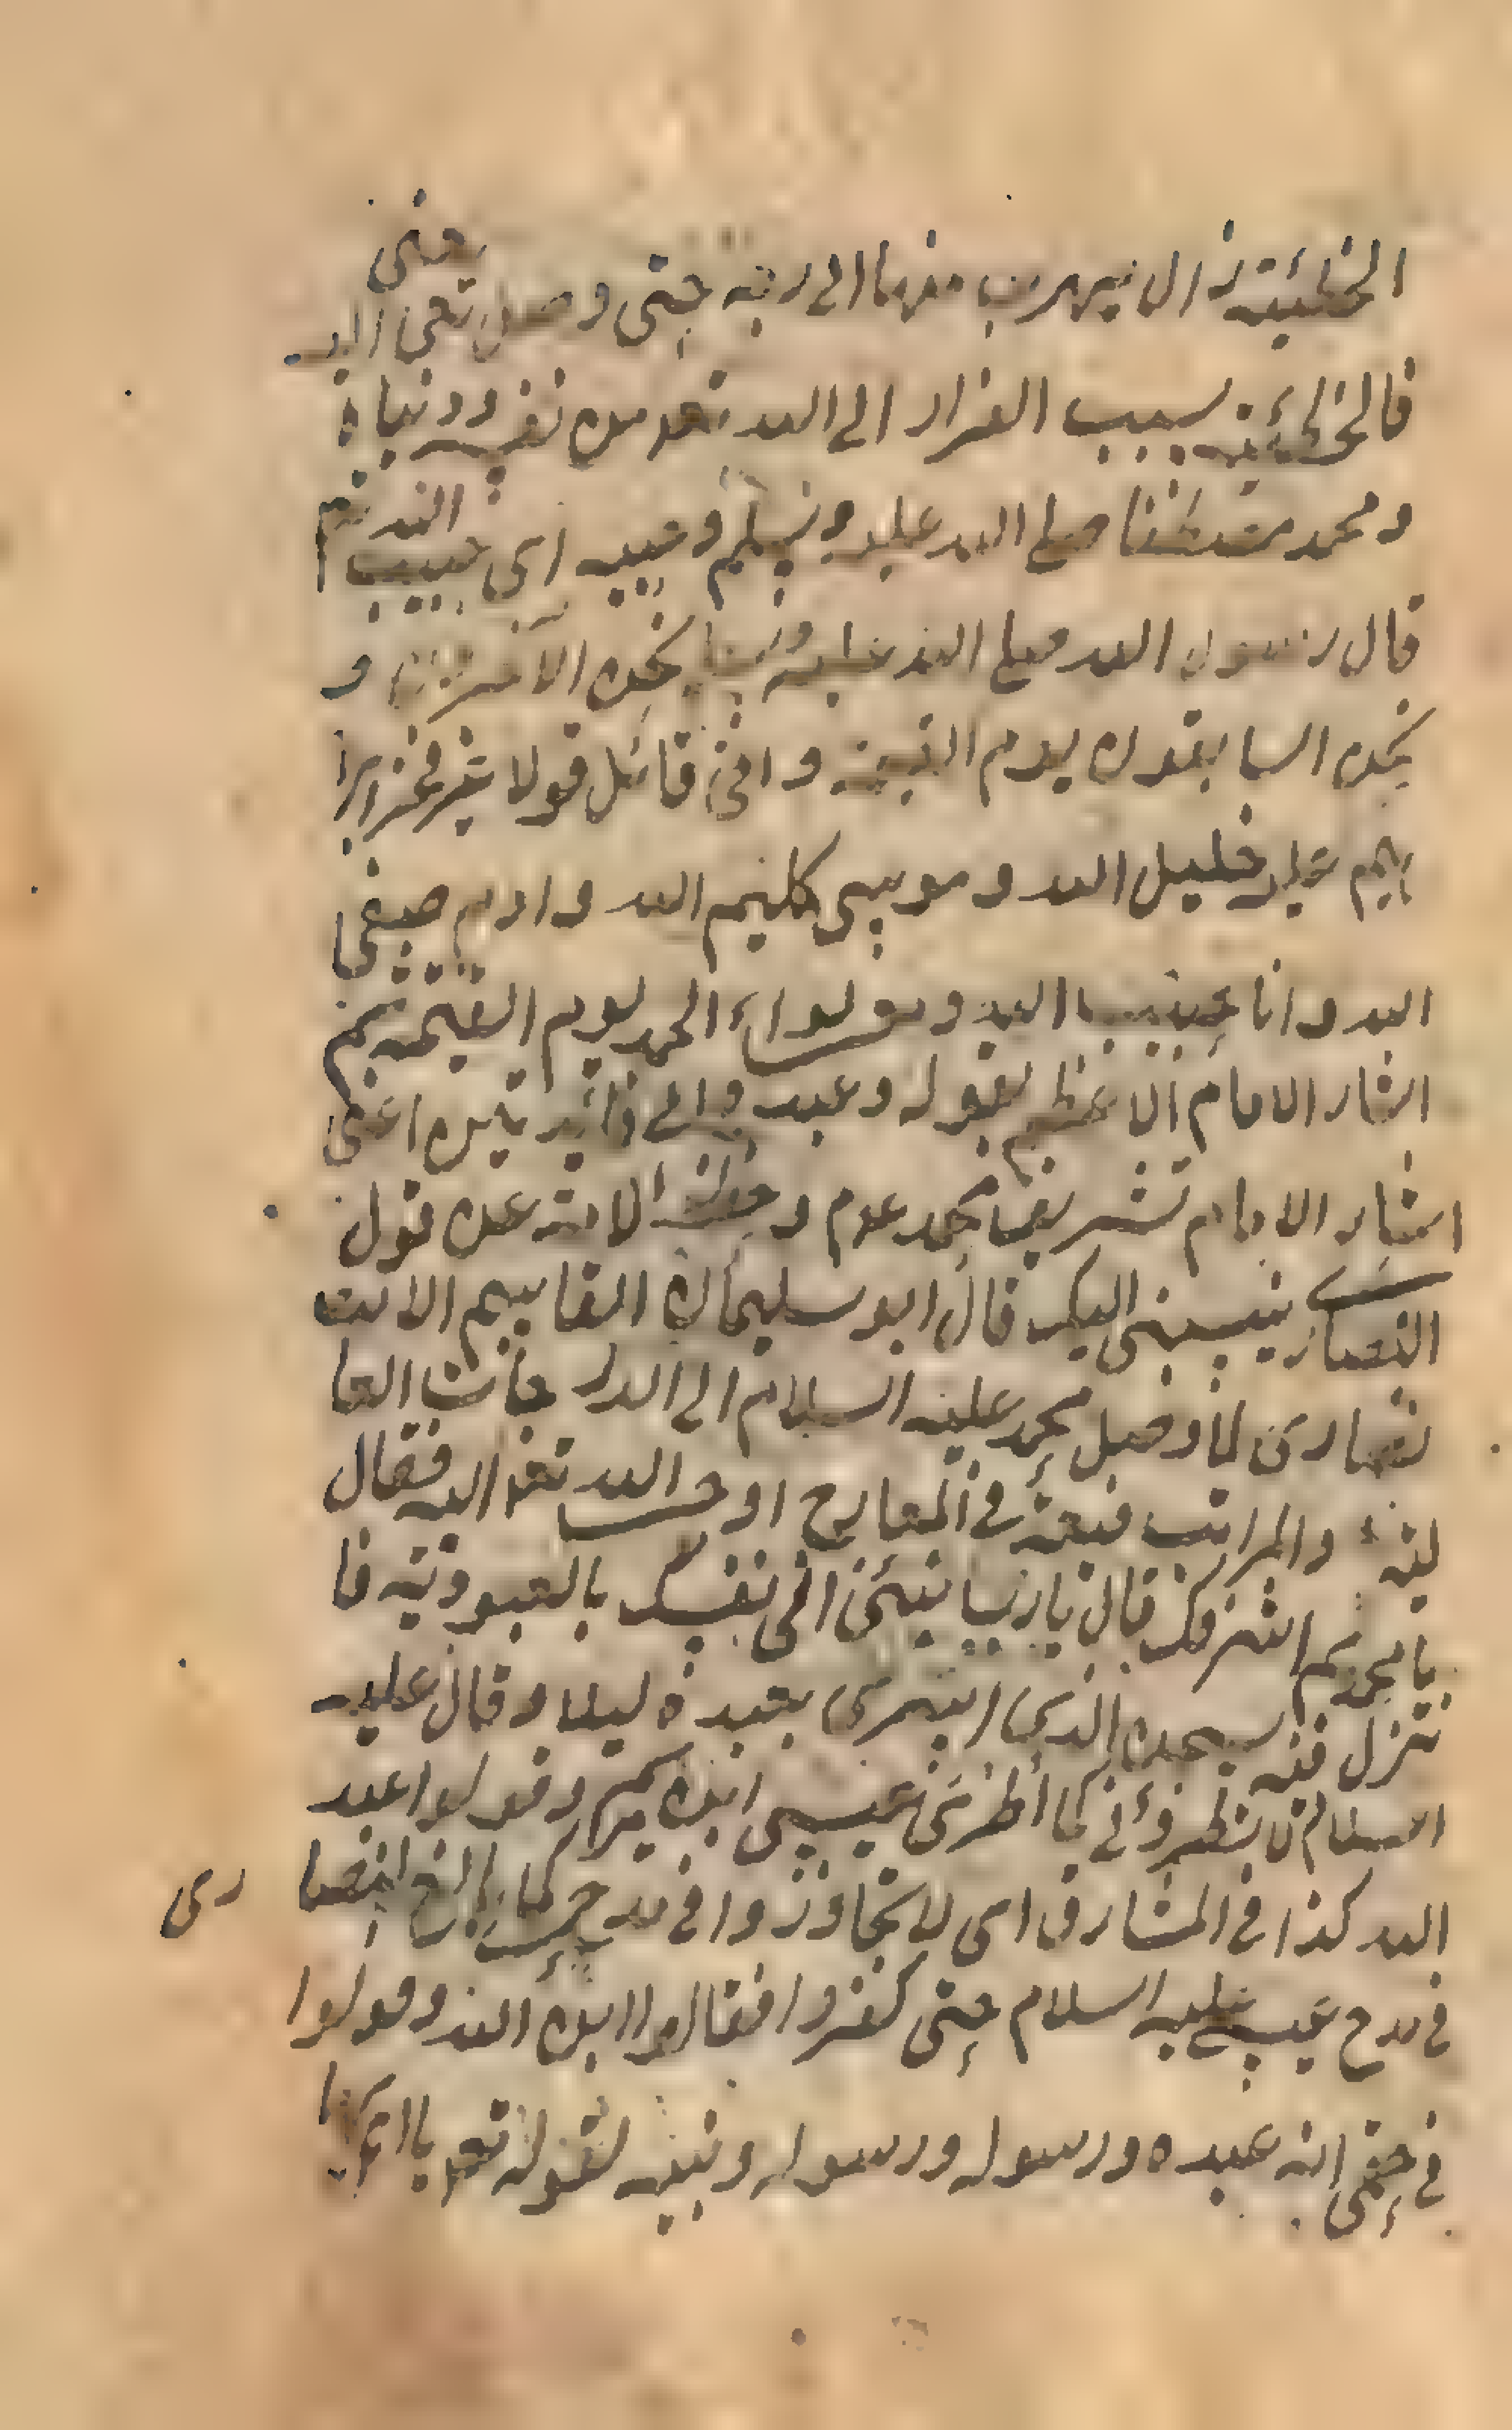 الخطيئة زال يهرب منها الى ربه حتى وصل يعنى اليه
فالخطيئة سبب الفرار الى الله تعم من نفسه ودنياه
ومحمد مصطفا صلى الله عليه وسلم وحبيبه اى حبيب الله تعم
قال رسول الله صلى الله عليه وسلم نحن الآخرون و
نحن السابقون يوم القيمة وانى قائل قولا غير فخر ابرا
هيم عليه خليل الله وموسى كليم الله وادم صفى
الله وانا حبيب الله ومعى لواء الحمد يوم القيمة ثم
اشار الامام الاعظم بقوله وعبده والى فائدتين اعنى
اشار الامام تشريف محمد عم وحفظ الامة عن قول
النصارى ينسبنى اليك قال ابو سليمان القاسم الانـ
نصارى لما وصل محمد عليه السلام الى الدرجات العا
لية والمراتب فيعة فى المعارج اوحى الله تعم اليه فقال
يا محمد بم اشرفك قال يا رب بنسبنى الى نفسك بالعبودية فا
نزل فيه سبحن الذى اسرى بعبده ليلا وقال عليه
السلام لا تطرونى كما اطرى عيسى ابن مريم وقولوا عبد
الله كذا فى المشارق اى لا تجاوزوا فى مدحى كما بالغ النصا رى
فى مدح عيسى عليه السلام حتى كفروا فقالوا ابن الله وقولوا
فى حقى انه عبده ورسوله ورسوله ونبيه لقوله تعم يا ايها